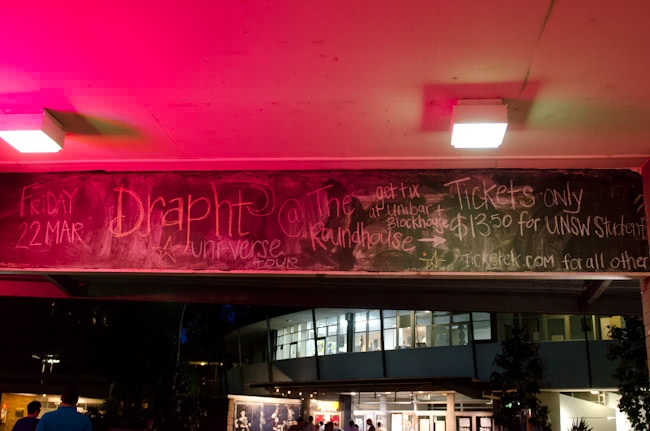 FRIDAY
22 MAR
Drapht
uni-verse
TOUR
@ The
Roundhouse
get tix
at unibar +
Blockhouse
→
Tickets only
$13.50 for UNSW Student
Ticketek.com for all other